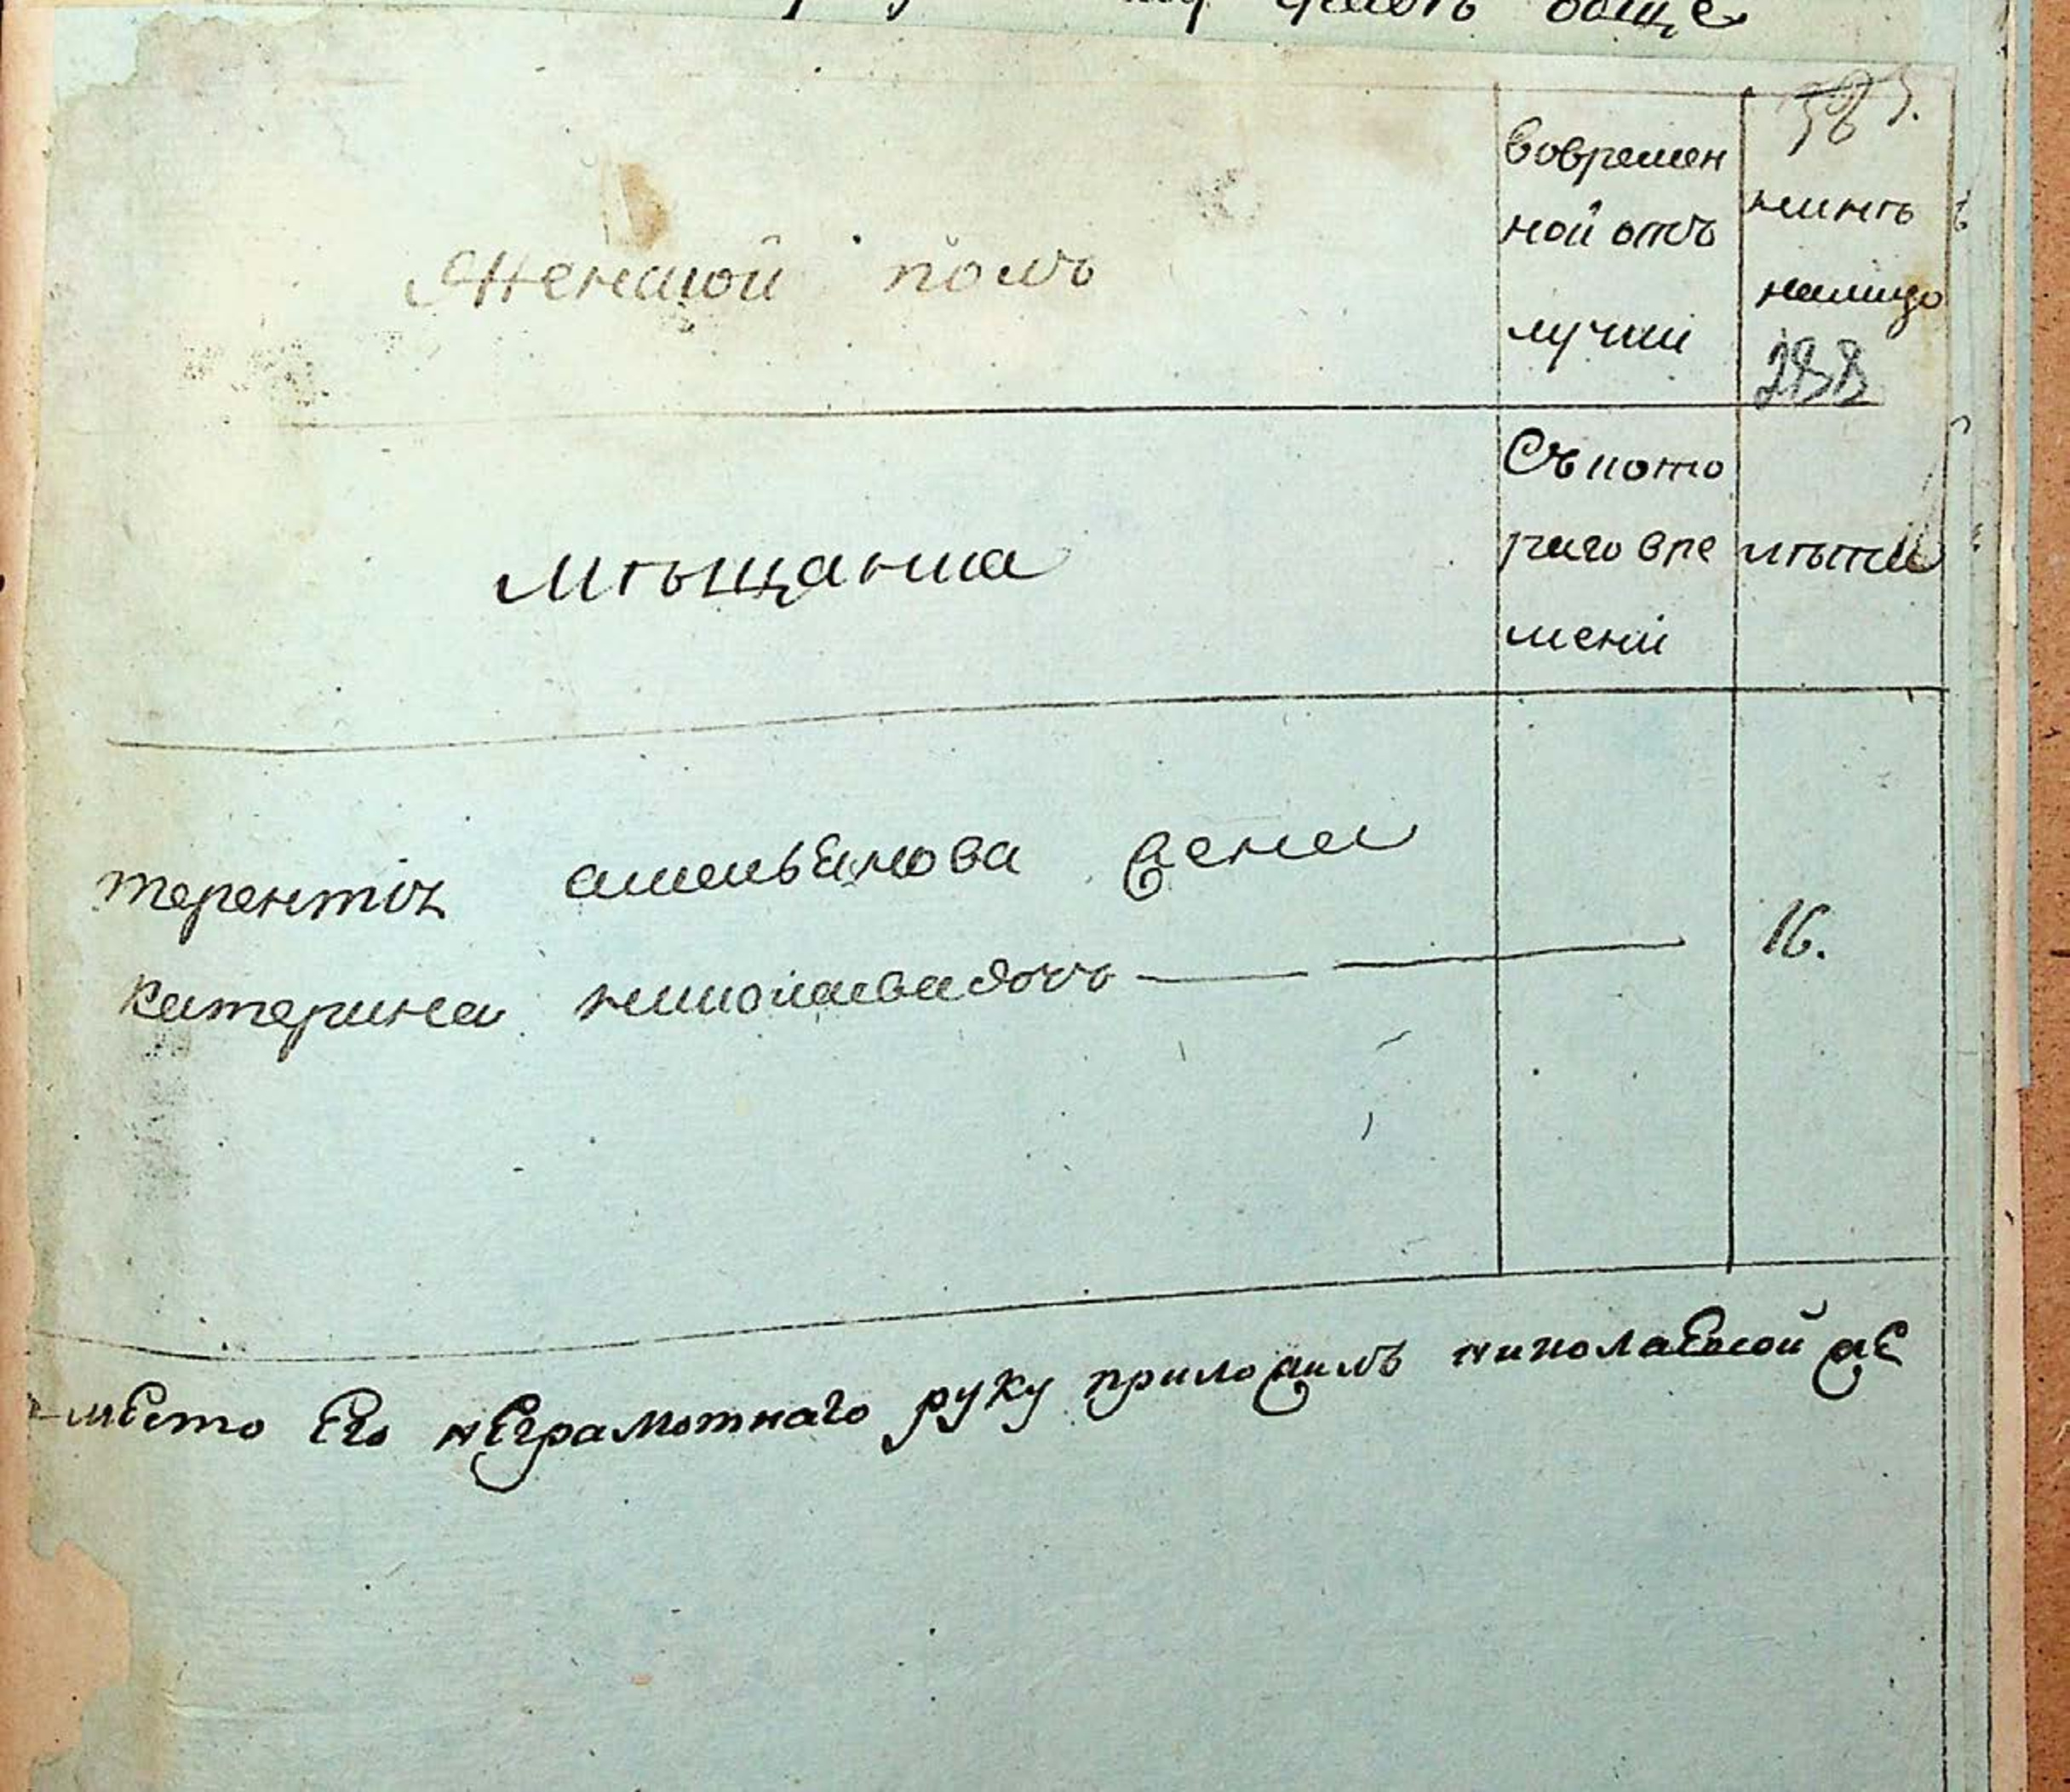 обще
Женской полъ
вовремен
ной отъ
лучкі
нынѣ
налицо
288
Мѣщанка
Съ кото
раго вре
мени
лѣты
терентія амельянова жена
катерина николаева дочь
16.
место Его нЕграмотнаго руку приложилъ николаЕвской жЕ